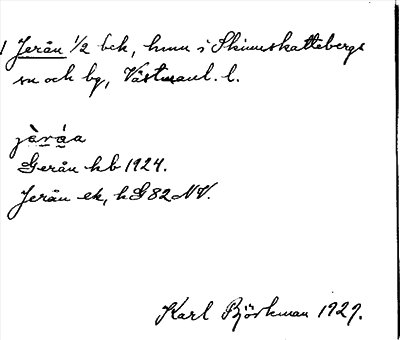 1 Jerån 1/2 bek, hmn i Skinnskattebergs
sn och bg, Västmanl. l.
jàráa
Gerån hb 1924.
Jerån ek, h G 82 NV.
Karl Björkman 1929.